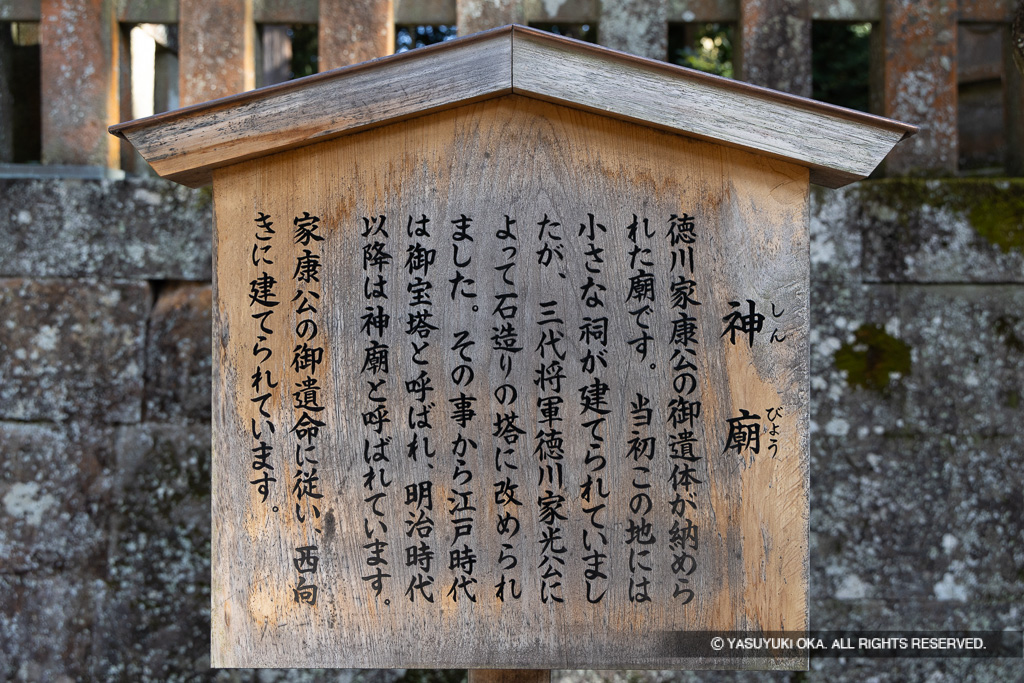 神廟
しんびょう
徳川家康公の御遺体が納めら
れた廟です。当初この地には
小さな祠が建てられていまし
たが、三代将軍徳川家光公に
よって石造りの塔に改められ
ました。その事から江戸時代
は御宝塔と呼ばれ、明治時代
以降は神廟と呼ばれています。
家康公の御遺命に従い、西向
きに建てられています。
© YASUYUKI OKA. ALL RIGHTS RESERVED.